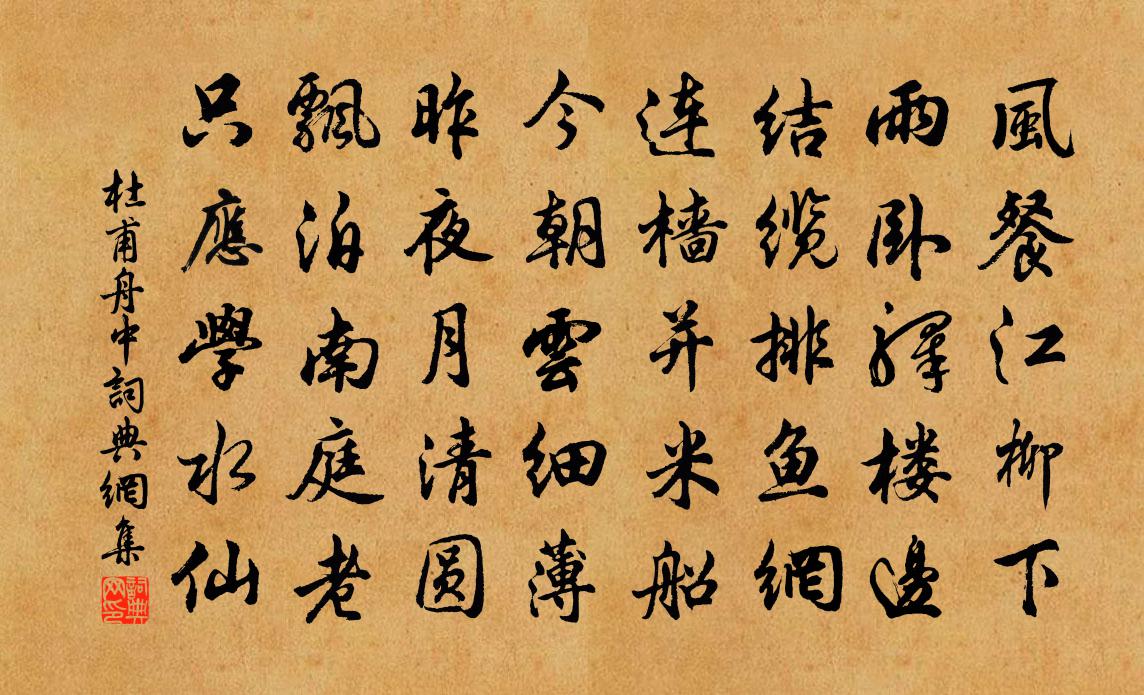 風餐江柳下
雨卧驛楼邊
结纜排魚網
連檣并米船
今朝雲細薄
昨夜月清圓
飄泊南庭老
只應學水仙
杜甫舟中詞典網集
詞典网印